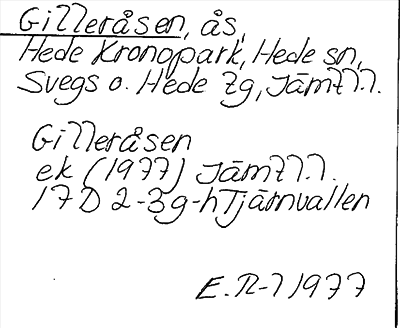 Gilleråsen, ås,
Hede Kronopark, Hede sn,
Svegs o. Hede tg, Jämtl.l.
Gilleråsen
ek (1977) Jämtl.l.
17D 2-3g-h Tjärnvallen
E.R-l 1977